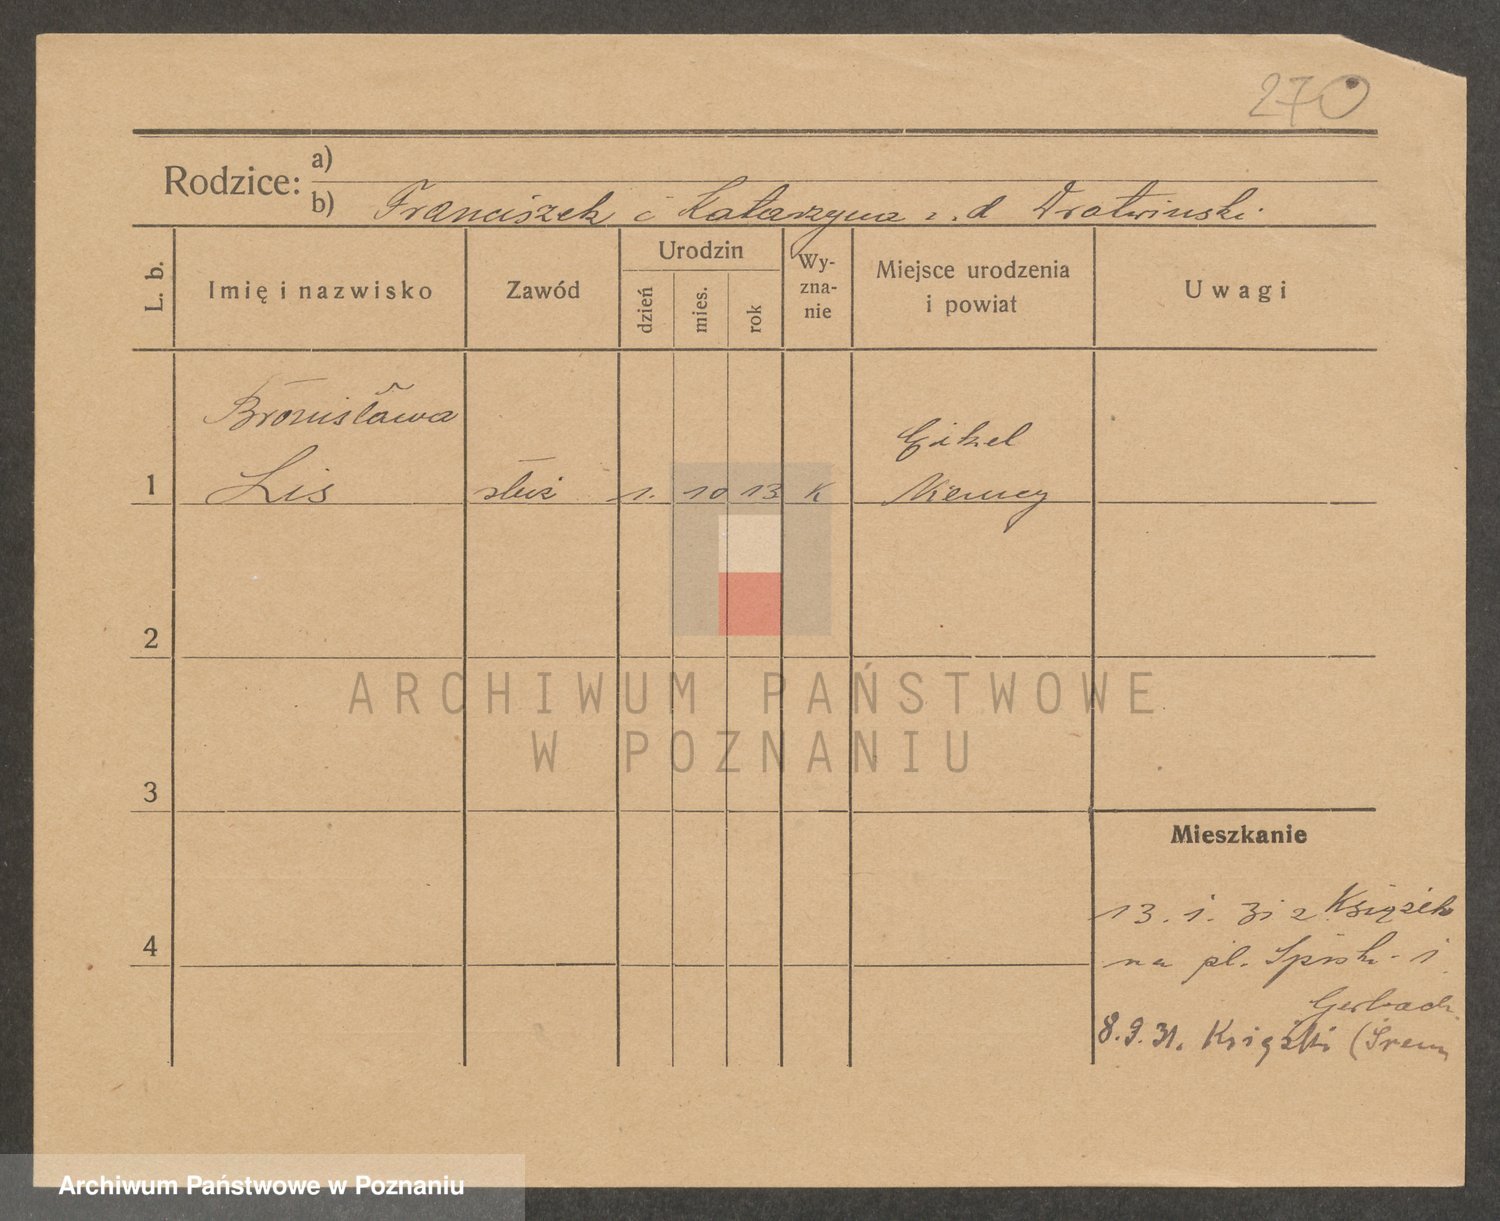 270
Rodzice: a)
b) Franciszek i Katarzyna z. d Drotwinski.
L. b.
Imię i nazwisko
Zawód
Urodzin
dzień
mies.
rok
Wy-
zna-
nie
Miejsce urodzenia
i powiat
Uwagi
Bronisława
Lis
1
służ
1. 10 13 K
Eikel
Niemcy
2
3
4
ARCHIWUM PAŃSTWOWE
W POZNANIU
Mieszkanie
13. 1. 31 z Książek
na pl. 1
8.9.31. Książki (Śrem
Archiwum Państwowe w Poznaniu